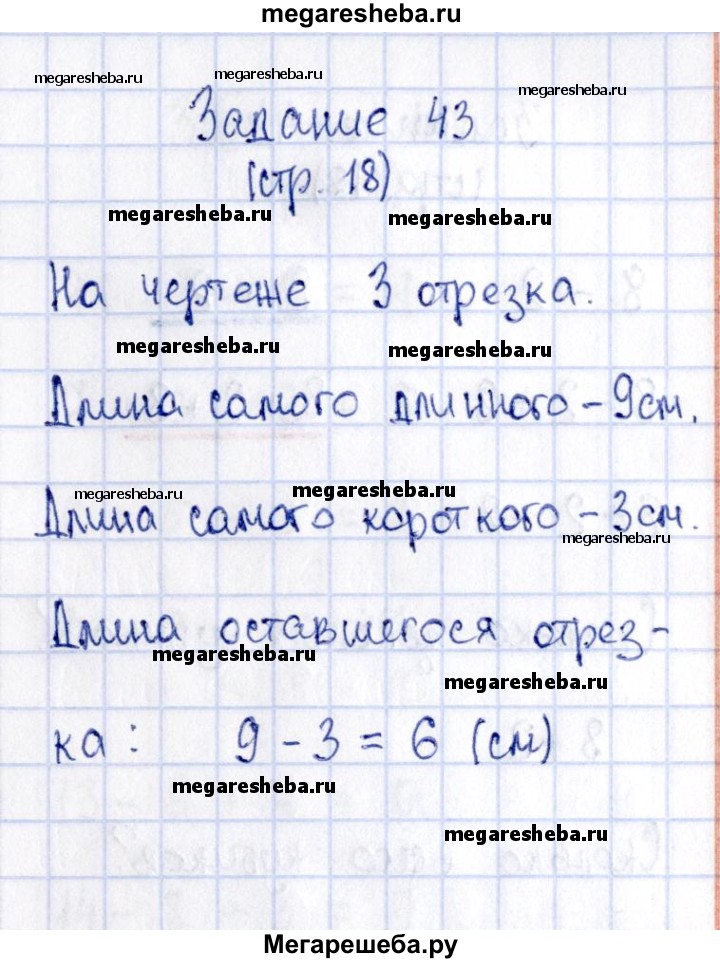 megaresheba.ru
megaresheba.ru megaresheba.ru megaresheba.ru
Задание 43
(стр. 18)
megaresheba.ru megaresheba.ru
На чертеже 3 отрезка.
megaresheba.ru megaresheba.ru
Длина самого длинного – 9см.
megaresheba.ru megaresheba.ru
Длина самого короткого – 3см.
megaresheba.ru
Длина оставшегося отрез-
megaresheba.ru megaresheba.ru
ка: 9 - 3 = 6 (см)
megaresheba.ru
megaresheba.ru
Мегарешеба.ру